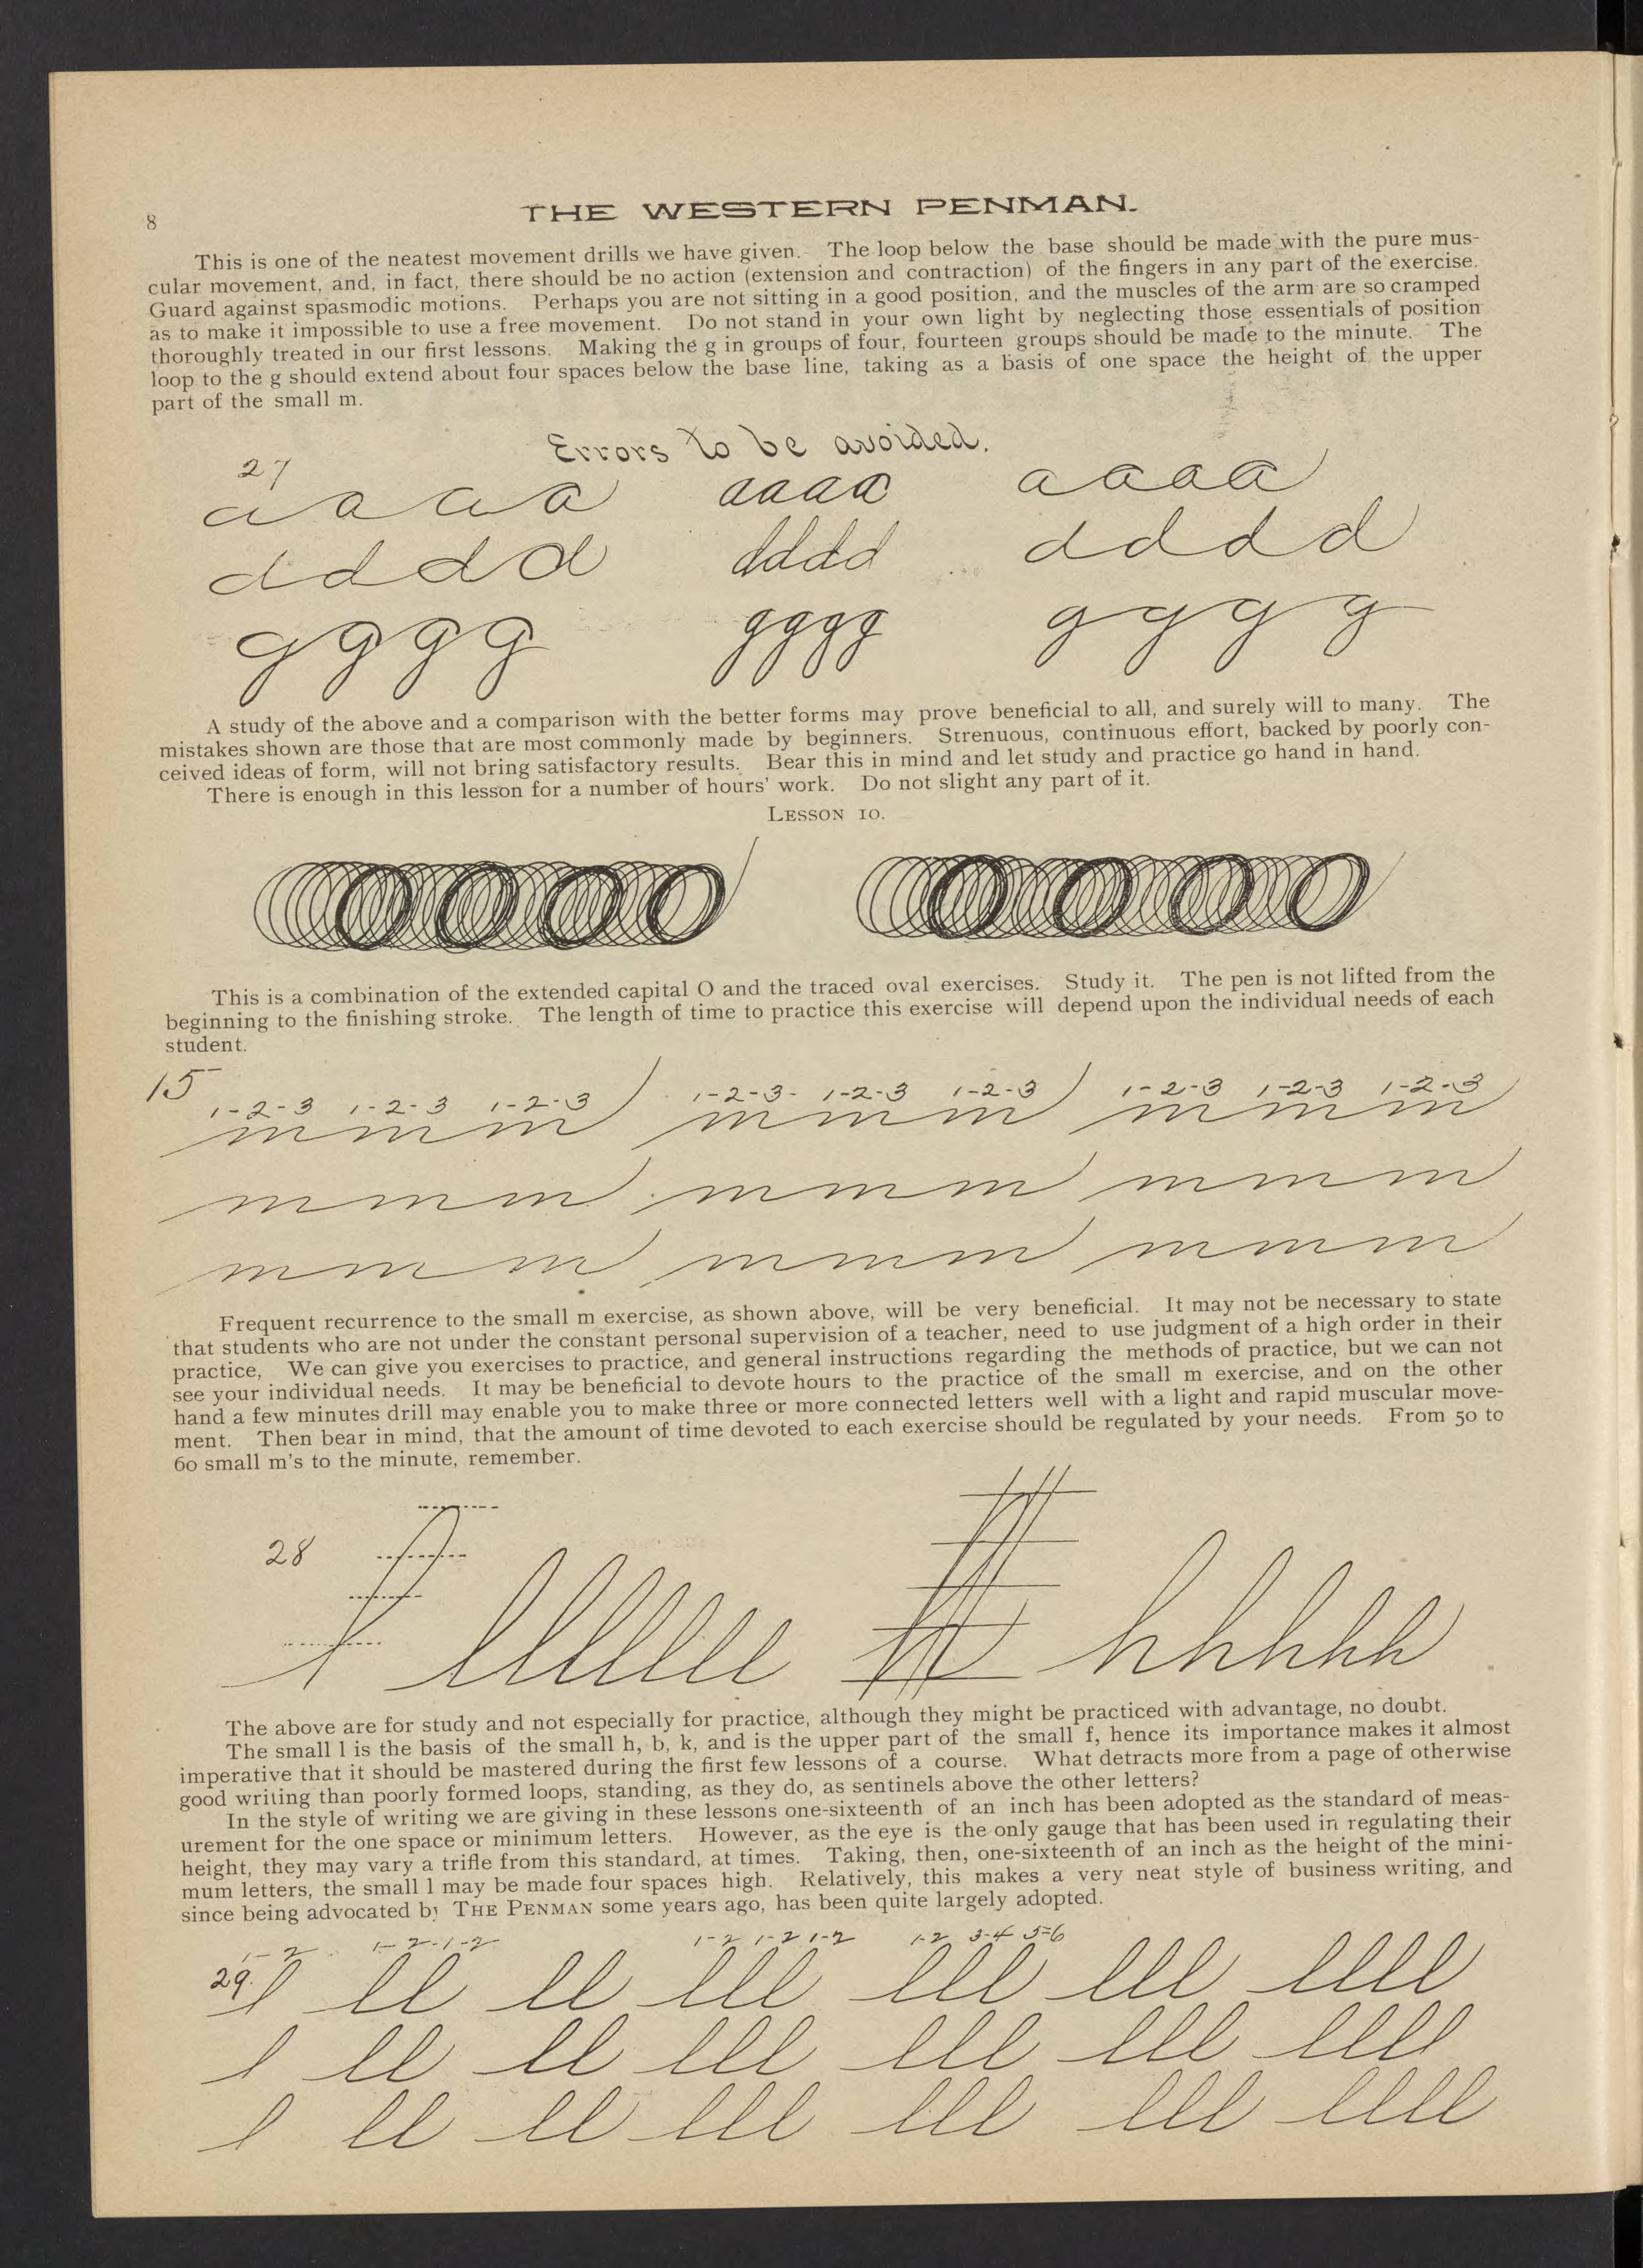 8
THE WESTERN PENMAN.
This is one of the neatest movement drills we have given. The loop below the base should be made with the pure mus-
cular movement, and, in fact, there should be no action (extension and contraction) of the fingers in any part of the exercise.
Guard against spasmodic motions. Perhaps you are not sitting in a good position, and the muscles of the arm are so cramped
as to make it impossible to use a free movement. Do not stand in your own light by neglecting those essentials of position
thoroughly treated in our first lessons. Making the g in groups of four, fourteen groups should be made to the minute. The
loop to the g should extend about four spaces below the base line, taking as a basis of one space the height of the upper
part of the small m.
Errors to be avoided.
27
a a a a aaaa a a a a
d d d d dddd d d d d
g g g g gggg g g g g
A study of the above and a comparison with the better forms may prove beneficial to all, and surely will to many. The
mistakes shown are those that are most commonly made by beginners. Strenuous, continuous effort, backed by poorly con-
ceived ideas of form, will not bring satisfactory results. Bear this in mind and let study and practice go hand in hand.
There is enough in this lesson for a number of hours' work. Do not slight any part of it.
LESSON 10.
This is a combination of the extended capital O and the traced oval exercises. Study it. The pen is not lifted from the
beginning to the finishing stroke. The length of time to practice this exercise will depend upon the individual needs of each
student.
15
1-2-3 1-2-3 1-2-3 1-2-3- 1-2-3 1-2-3 1-2-3 1-2-3 1-2-3
m m m m m m m m m
m m m m m m m m m
m m m m m m m m m
Frequent recurrence to the small m exercise, as shown above, will be very beneficial. It may not be necessary to state
that students who are not under the constant personal supervision of a teacher, need to use judgment of a high order in their
practice, We can give you exercises to practice, and general instructions regarding the methods of practice, but we can not
see your individual needs. It may be beneficial to devote hours to the practice of the small m exercise, and on the other
hand a few minutes drill may enable you to make three or more connected letters well with a light and rapid muscular move-
ment. Then bear in mind, that the amount of time devoted to each exercise should be regulated by your needs. From 50 to
60 small m's to the minute, remember.
28
l lllllll h hhhhh
The above are for study and not especially for practice, although they might be practiced with advantage, no doubt.
The small l is the basis of the small h, b, k, and is the upper part of the small f, hence its importance makes it almost
imperative that it should be mastered during the first few lessons of a course. What detracts more from a page of otherwise
good writing than poorly formed loops, standing, as they do, as sentinels above the other letters?
In the style of writing we are giving in these lessons one-sixteenth of an inch has been adopted as the standard of meas-
urement for the one space or minimum letters. However, as the eye is the only gauge that has been used in regulating their
height, they may vary a trifle from this standard, at times. Taking, then, one-sixteenth of an inch as the height of the mini-
mum letters, the small l may be made four spaces high. Relatively, this makes a very neat style of business writing, and
since being advocated by THE PENMAN some years ago, has been quite largely adopted.
1-2 1-2-1-2 1-2 1-2 1-2 1-2 3-4 5=6
29. l ll ll lll lll lll llll
l ll ll lll lll lll llll
l ll ll lll lll lll llll